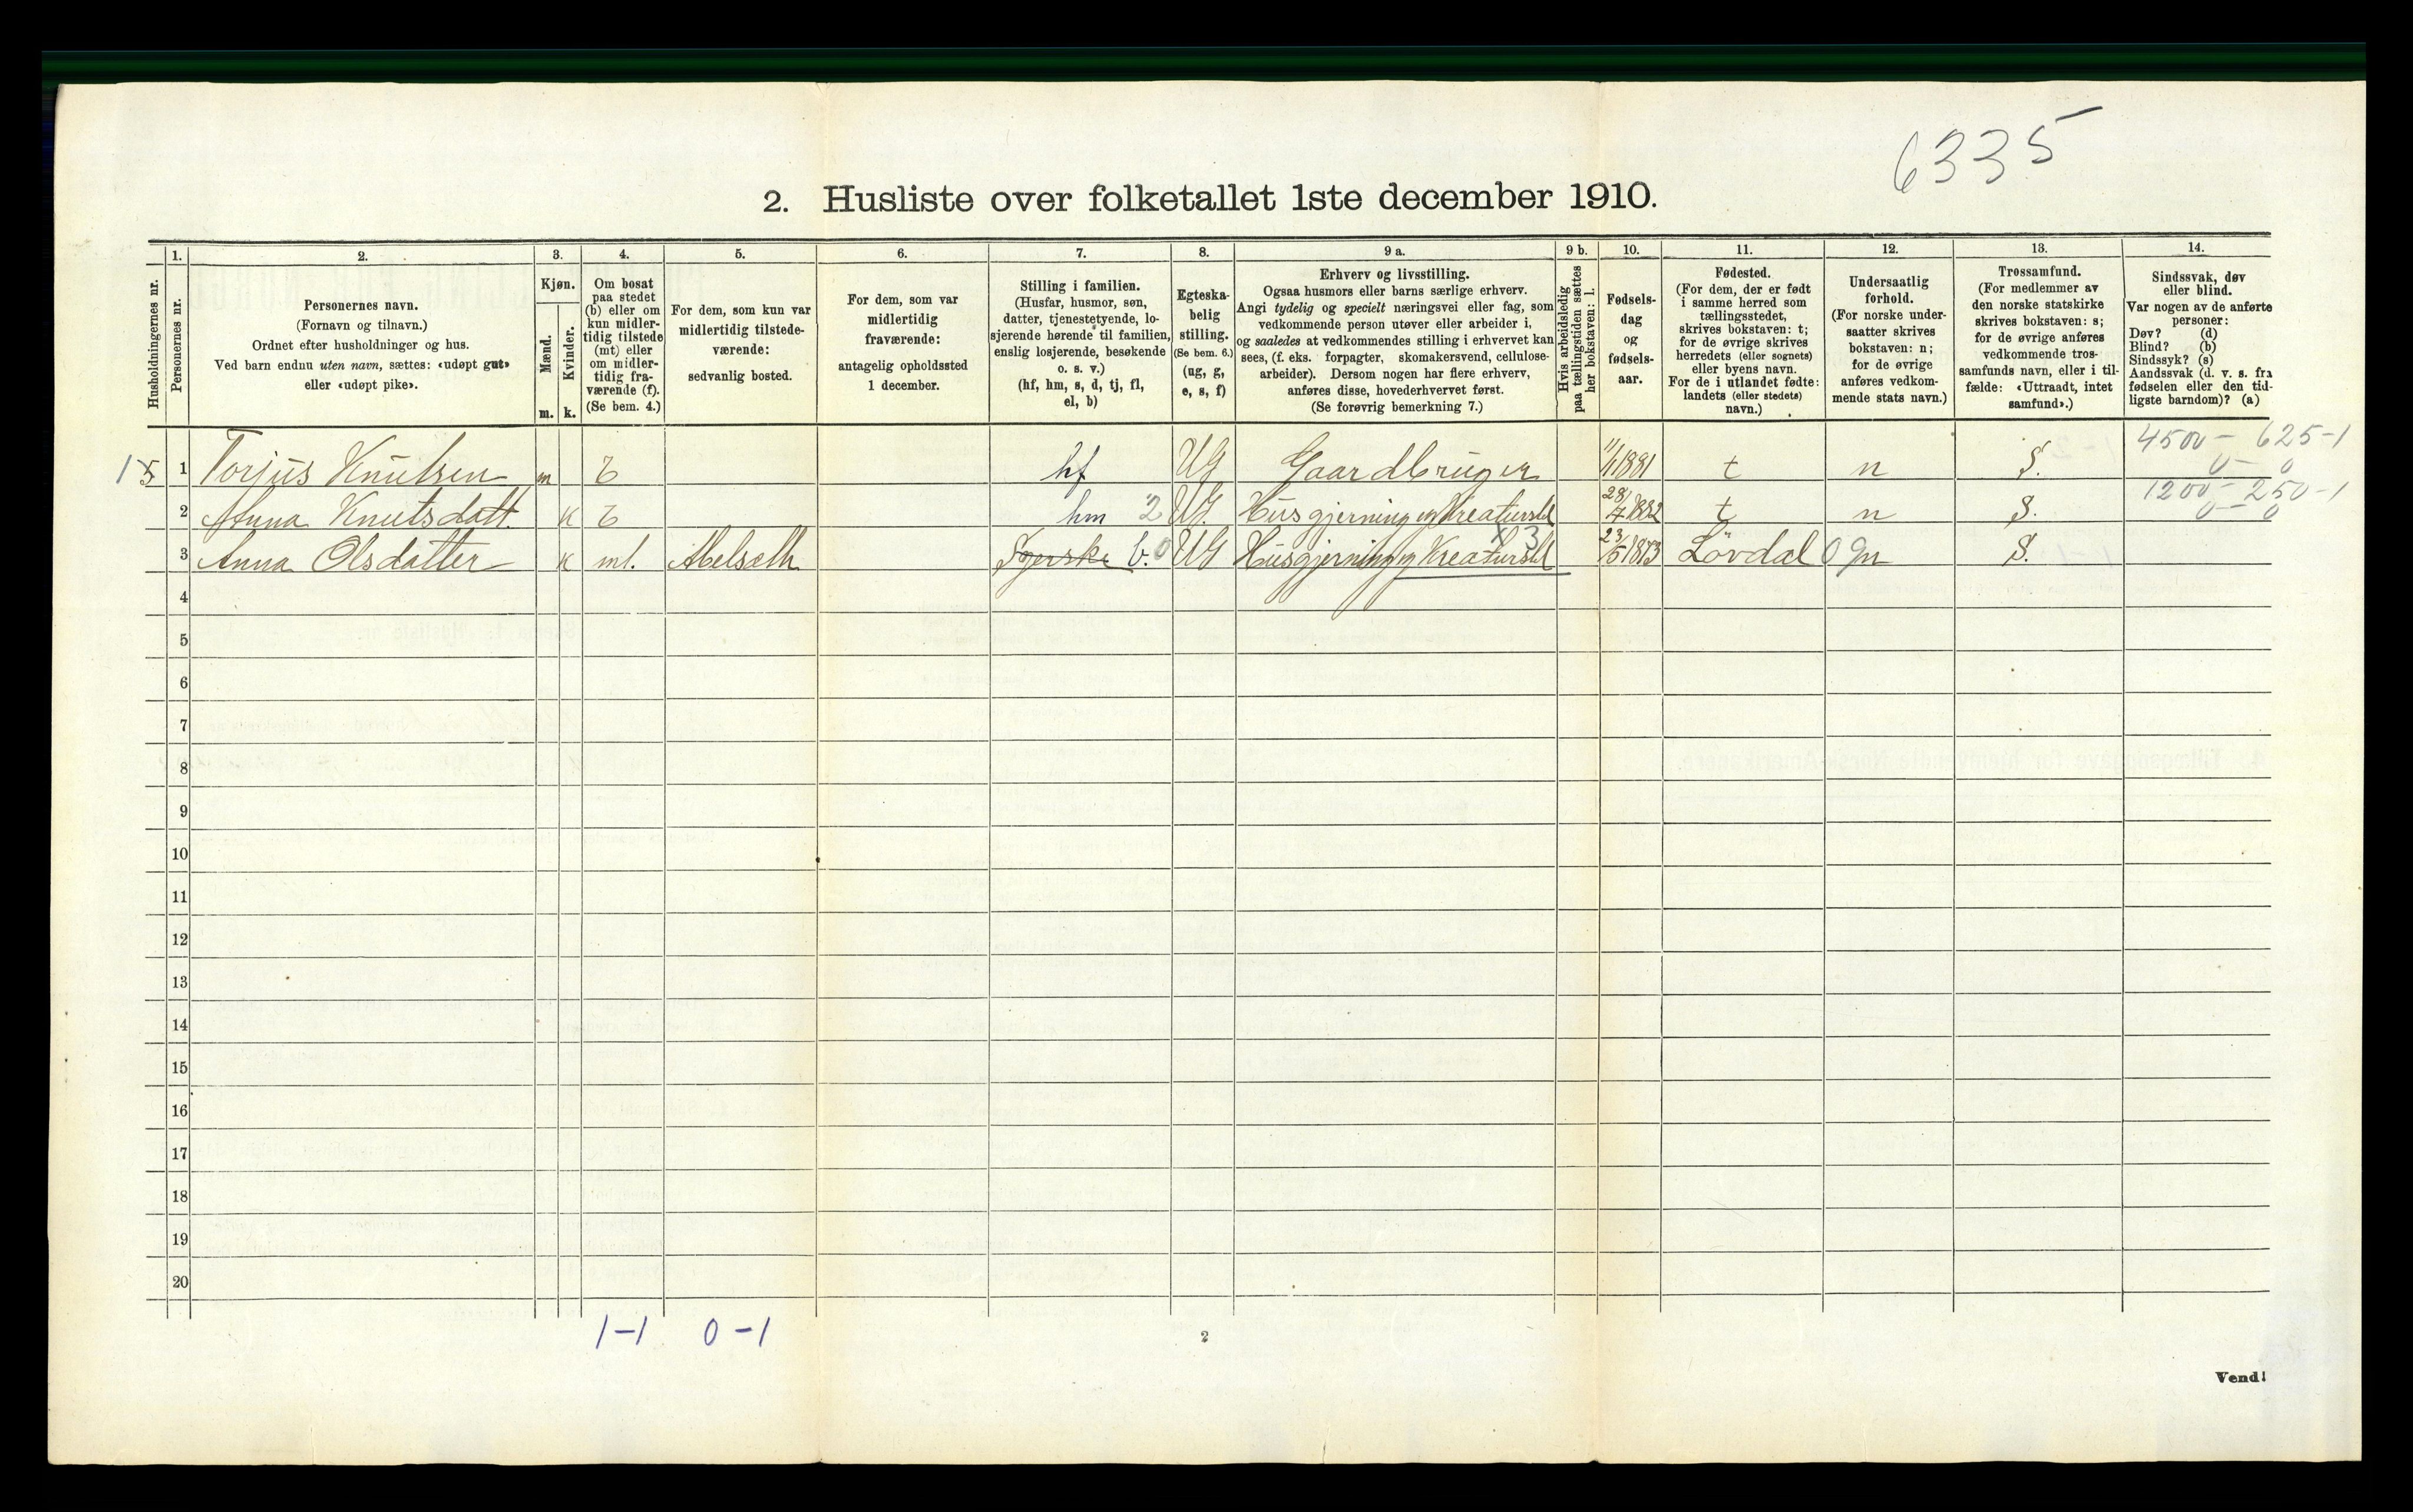 6335
2. Husliste over folketallet 1ste december 1910.
Husholdningernes nr.
1.
Personernes nr.
2.
Personernes navn.
(Fornavn og tilnavn.)
Ordnet efter husholdninger og hus.
Ved barn endnu uten navn, sættes: «udøpt gut»
eller «udøpt pike».
3.
Kjøn.
Mænd.
m.
Kvinder.
k.
4.
Om bosat
paa stedet
(b) eller om
kun midler-
tidig tilstede
(mt) eller
om midler-
tidig fra-
værende (f).
(Se bem. 4.)
5.
For dem, som kun var
midlertidig tilstede-
værende:
sedvanlig bosted.
6.
For dem, som var
midlertidig
fraværende:
antagelig opholdssted
1 december.
7.
Stilling i familien.
(Husfar, husmor, søn,
datter, tjenestetyende, lo-
sjerende hørende til familien,
enslig losjerende, besøkende
o. s. v.)
(hf, hm, s, d, tj, fl,
el, b)
8.
Egteska-
belig
stilling.
(Se bem. 6.)
(ug, g,
e, s, f)
9 a.
Erhverv og livsstilling.
Ogsaa husmors eller barns særlige erhverv.
Angi tydelig og specielt næringsvei eller fag, som
vedkommende person utøver eller arbeider i,
og saaledes at vedkommendes stilling i erhvervet kan
sees, (f. eks. forpagter, skomakersvend, cellulose-
arbeider). Dersom nogen har flere erhverv,
anføres disse, hovederhvervet først.
(Se forøvrig bemerkning 7.)
9 b.
Hvis arbeidsledig
paa tællingstiden sættes
her bokstaven: l.
10.
Fødsels-
dag
og
fødsels-
aar.
11.
Fødested.
(For dem, der er født
i samme herred som
tællingsstedet,
skrives bokstaven: t;
for de øvrige skrives
herredets (eller sognets)
eller byens navn.
For de i utlandet fødte:
landets (eller stedets)
navn.)
12.
Undersaatlig
forhold.
(For norske under-
saatter skrives
bokstaven: n;
for de øvrige
anføres vedkom-
mende stats navn.)
13.
Trossamfund.
(For medlemmer av
den norske statskirke
skrives bokstaven: s;
for de øvrige anføres
vedkommende tros-
samfunds navn, eller i til-
fælde: «Uttraadt, intet
samfund».)
14.
Sindssvak, døv
eller blind.
Var nogen av de anførte
personer:
Døv? (d)
Blind? (b)
Sindssyk? (s)
Aandssvak (d. v. s. fra
fødselen eller den tid-
ligste barndom)? (a)
4500 - 625-1
1 Torjus Knutsen m b hf UG Gaardbruger 1/1 1881 t n S. 0-0
1200 - 250-1
2 Anna Knutsdatt. k b hm 2 UG. Husgjerning og Kreaturstel 28/7 1882 t n S. 0-0
3 Anna Olsdatter k mt. Syerske b. 0 UG Husgjerning og Kreaturstel x 3 1873 Lövdal n S.
4
5
6
7
8
9
10
11
12
13
14
15
16
17
18
19
20
1-1 0-1
2
Vend!